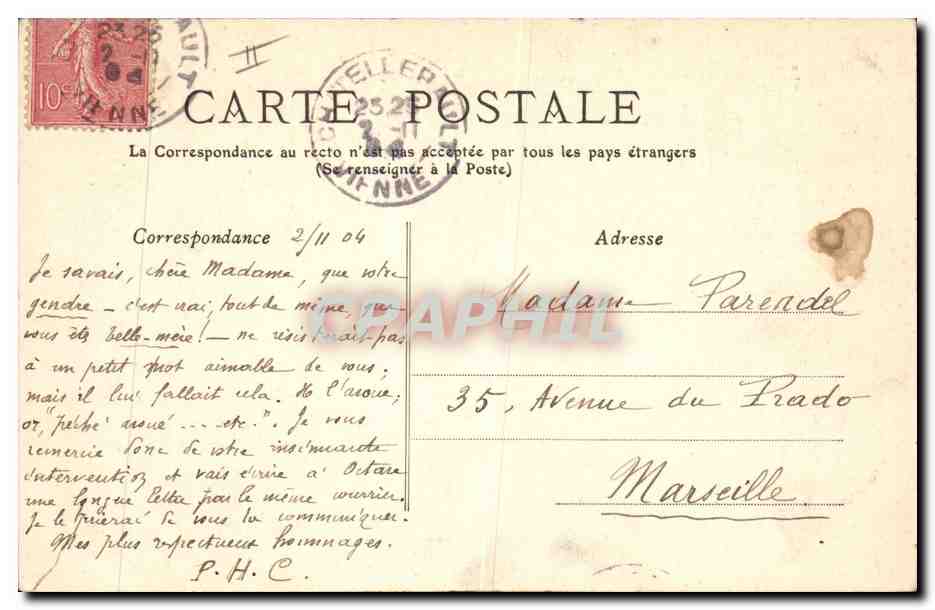 10c
CHATELLERAULT
23,25
2 - 11
04
VIENNE
II
CARTE POSTALE
La Correspondance au recto n'est pas acceptée par tous les pays étrangers
(Se renseigner à la Poste)
Correspondance 2/11 04
Je savais, chère Madame, que votre
gendre – c'est vrai, tout de même, que
vous êtes belle-mère! – ne résisterait pas
à un petit mot aimable de vous;
mais il lui fallait cela. Il l'avoue;
or, "péché avoué .... etc.". Je vous
remercie donc de votre insinuante
intervention et vais écrire à Octave
une longue lettre par le même courrier.
Je le prierai de vous la communiquer.
Mes plus respectueux hommages.
P.H.C.
Adresse
Madame Parendel
35, Avenue du Prado
Marseille
CPAPHIL